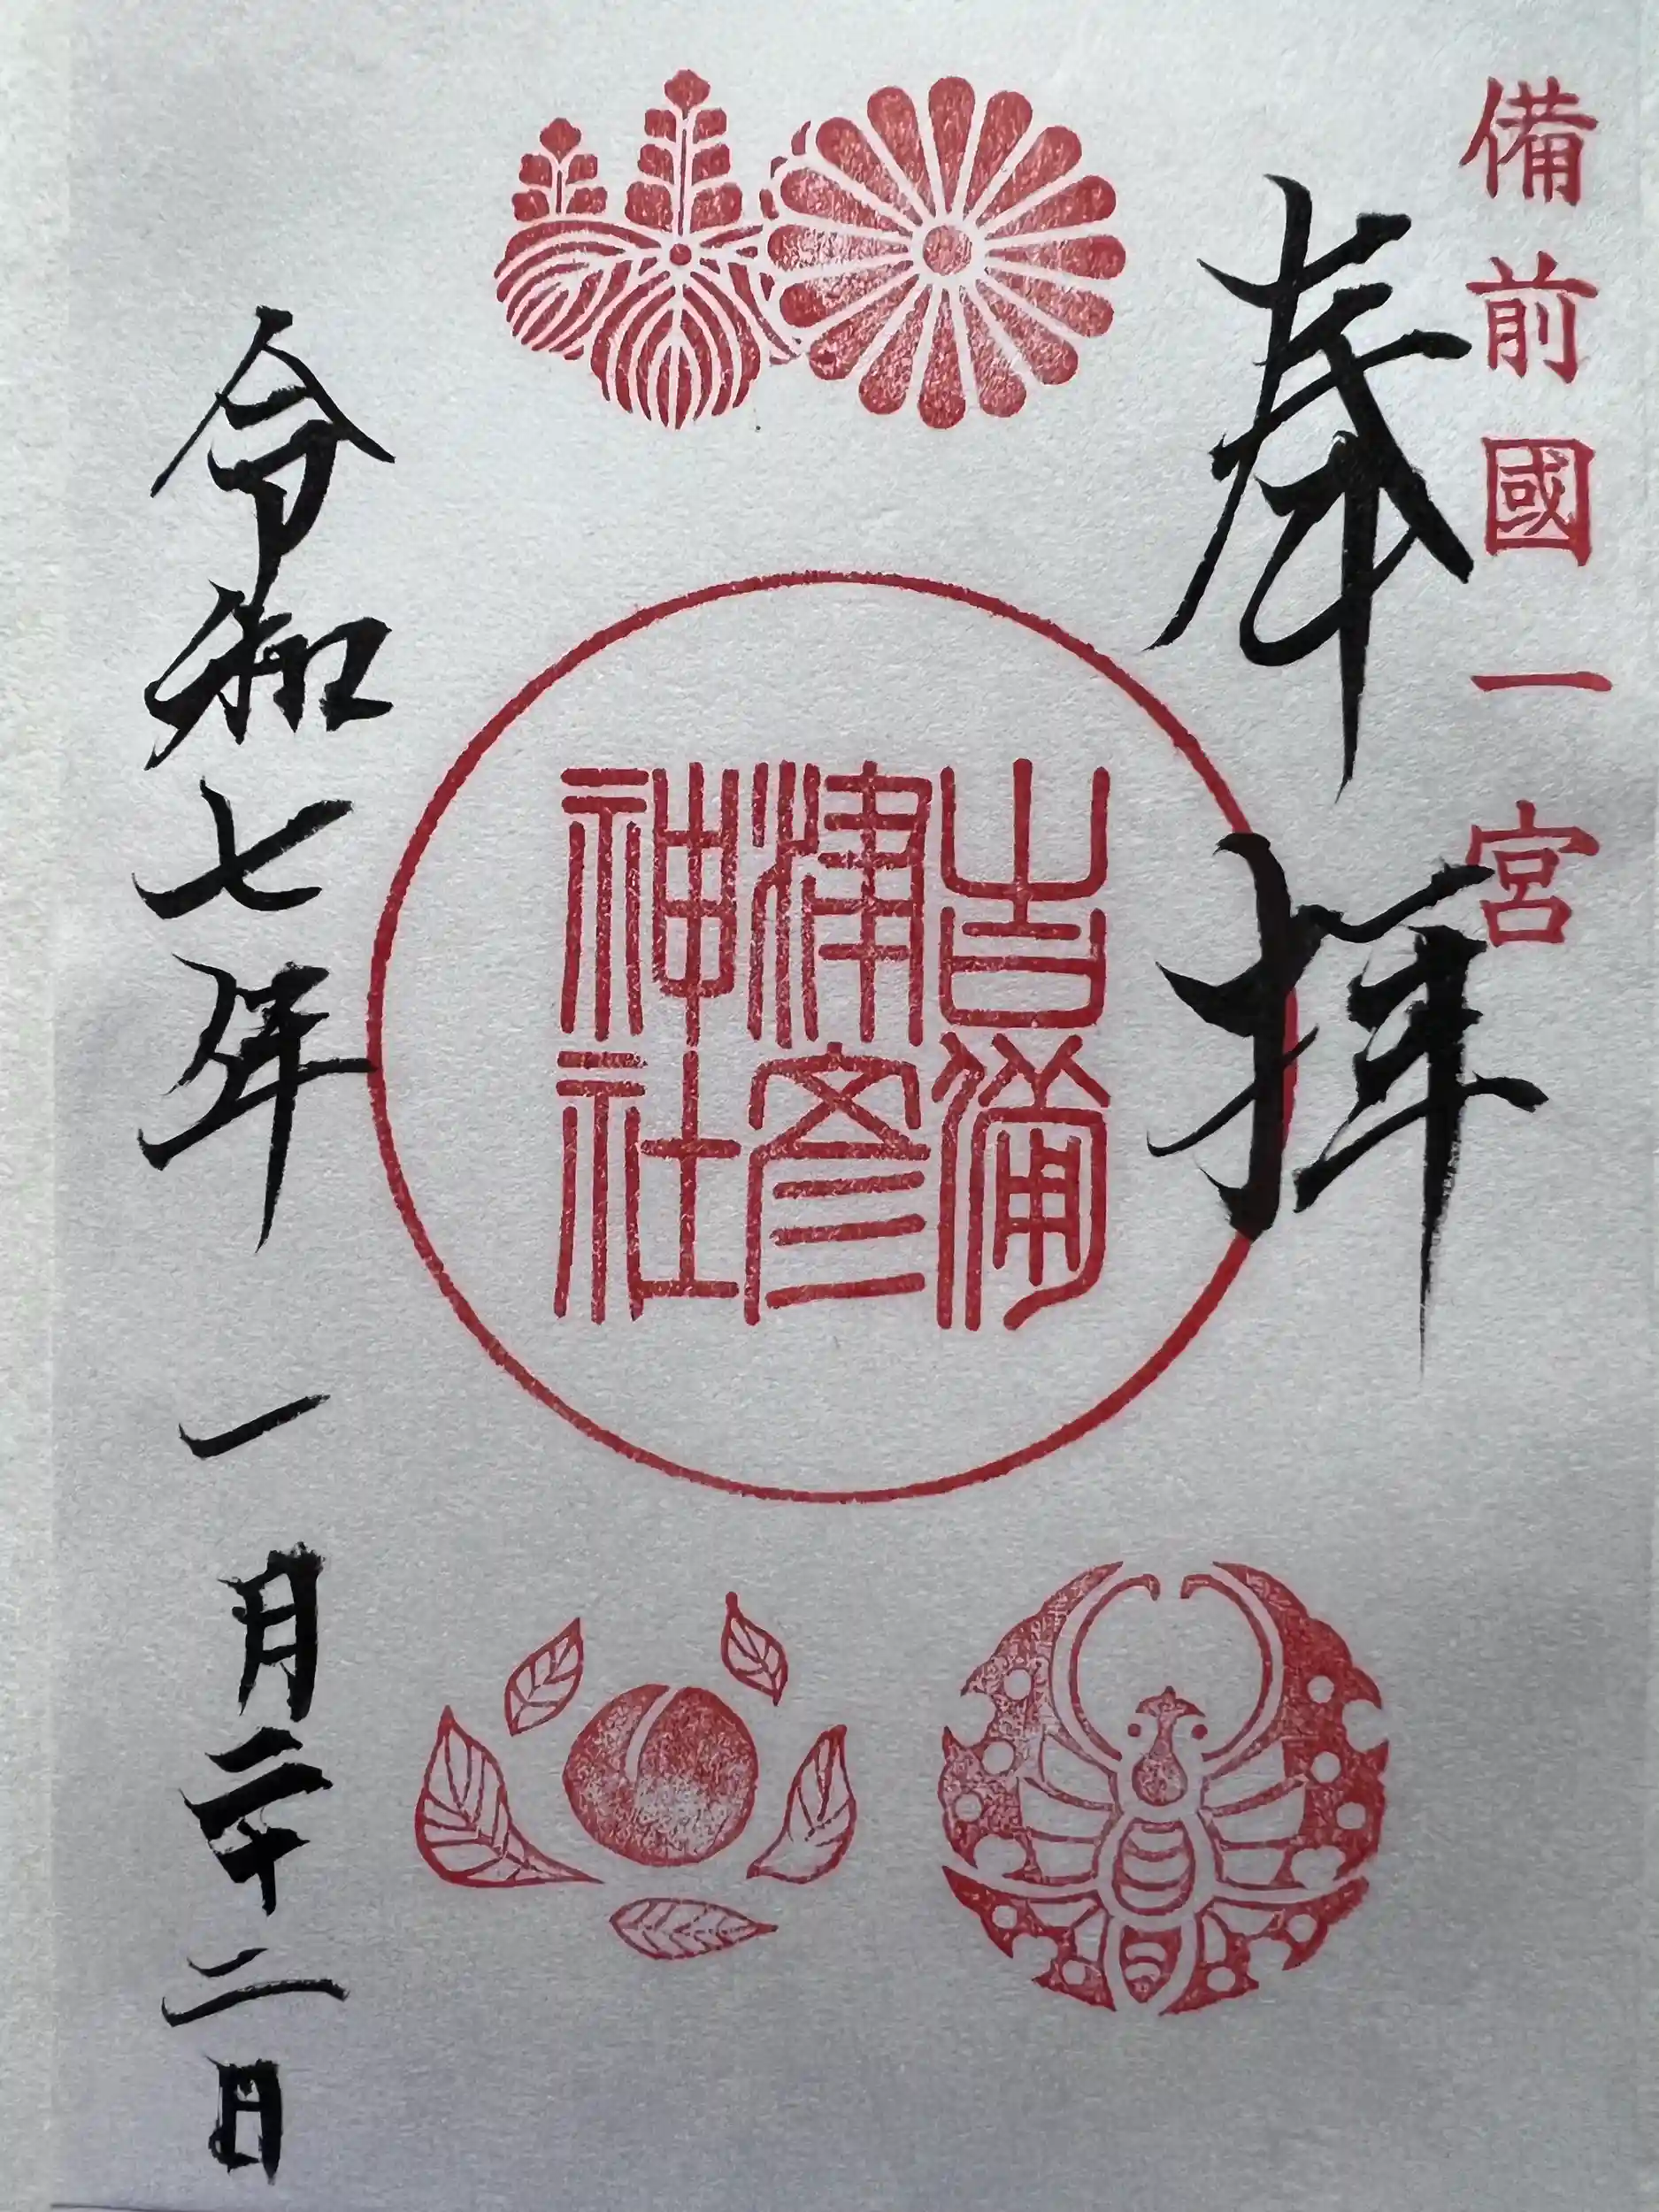 備前國一宮
奉拝
吉備
津彦
神社
令和七年一月二十二日